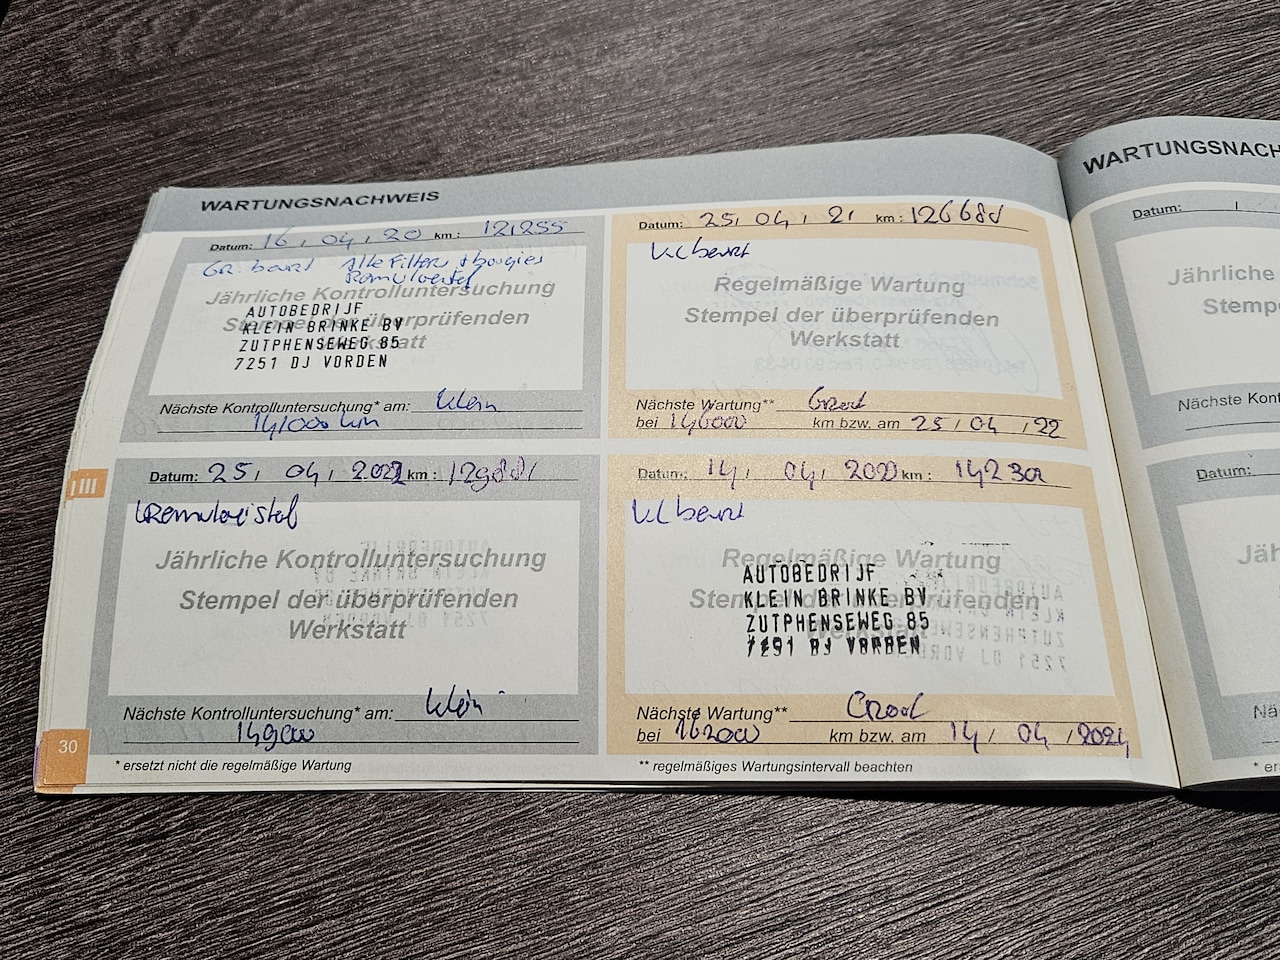 WARTUNGSNACHWEIS
Datum: 16 / 04 / 20 km: 121255
Gr. beurt Alle Filters + bougies
Jährliche Kontrolluntersuchung
Stempel der überprüfenden
Werkstatt
AUTOBEDRIJF
KLEIN BRINKE BV
ZUTPHENSEWEG 85
7251 DJ VORDEN
Nächste Kontrolluntersuchung* am: Klein
141000 km
Datum: 25 / 04 / 21 km:
Kl beurt
Regelmäßige Wartung
Stempel der überprüfenden
Werkstatt
Nächste Wartung** Groot
bei 146000 km bzw. am 25 / 04 / 22
Datum: 25 / 04 / km:
Jährliche Kontrolluntersuchung
Stempel der überprüfenden
Werkstatt
Nächste Kontrolluntersuchung* am: Klein
149000
* ersetzt nicht die regelmäßige Wartung
Datum: 14 / 04 / km:
Kl beurt
Regelmäßige Wartung
Stempel der überprüfenden
AUTOBEDRIJF
KLEIN BRINKE BV
ZUTPHENSEWEG 85
7251 DJ VORDEN
Nächste Wartung** Groot
bei 162000 km bzw. am 14 / 04 / 2024
** regelmäßiges Wartungsintervall beachten
III
30
WARTUNGSNACH
Datum: /
Jährliche
Stemp
Nächste Kont
Datum:
Jäh
S
Nä
* er